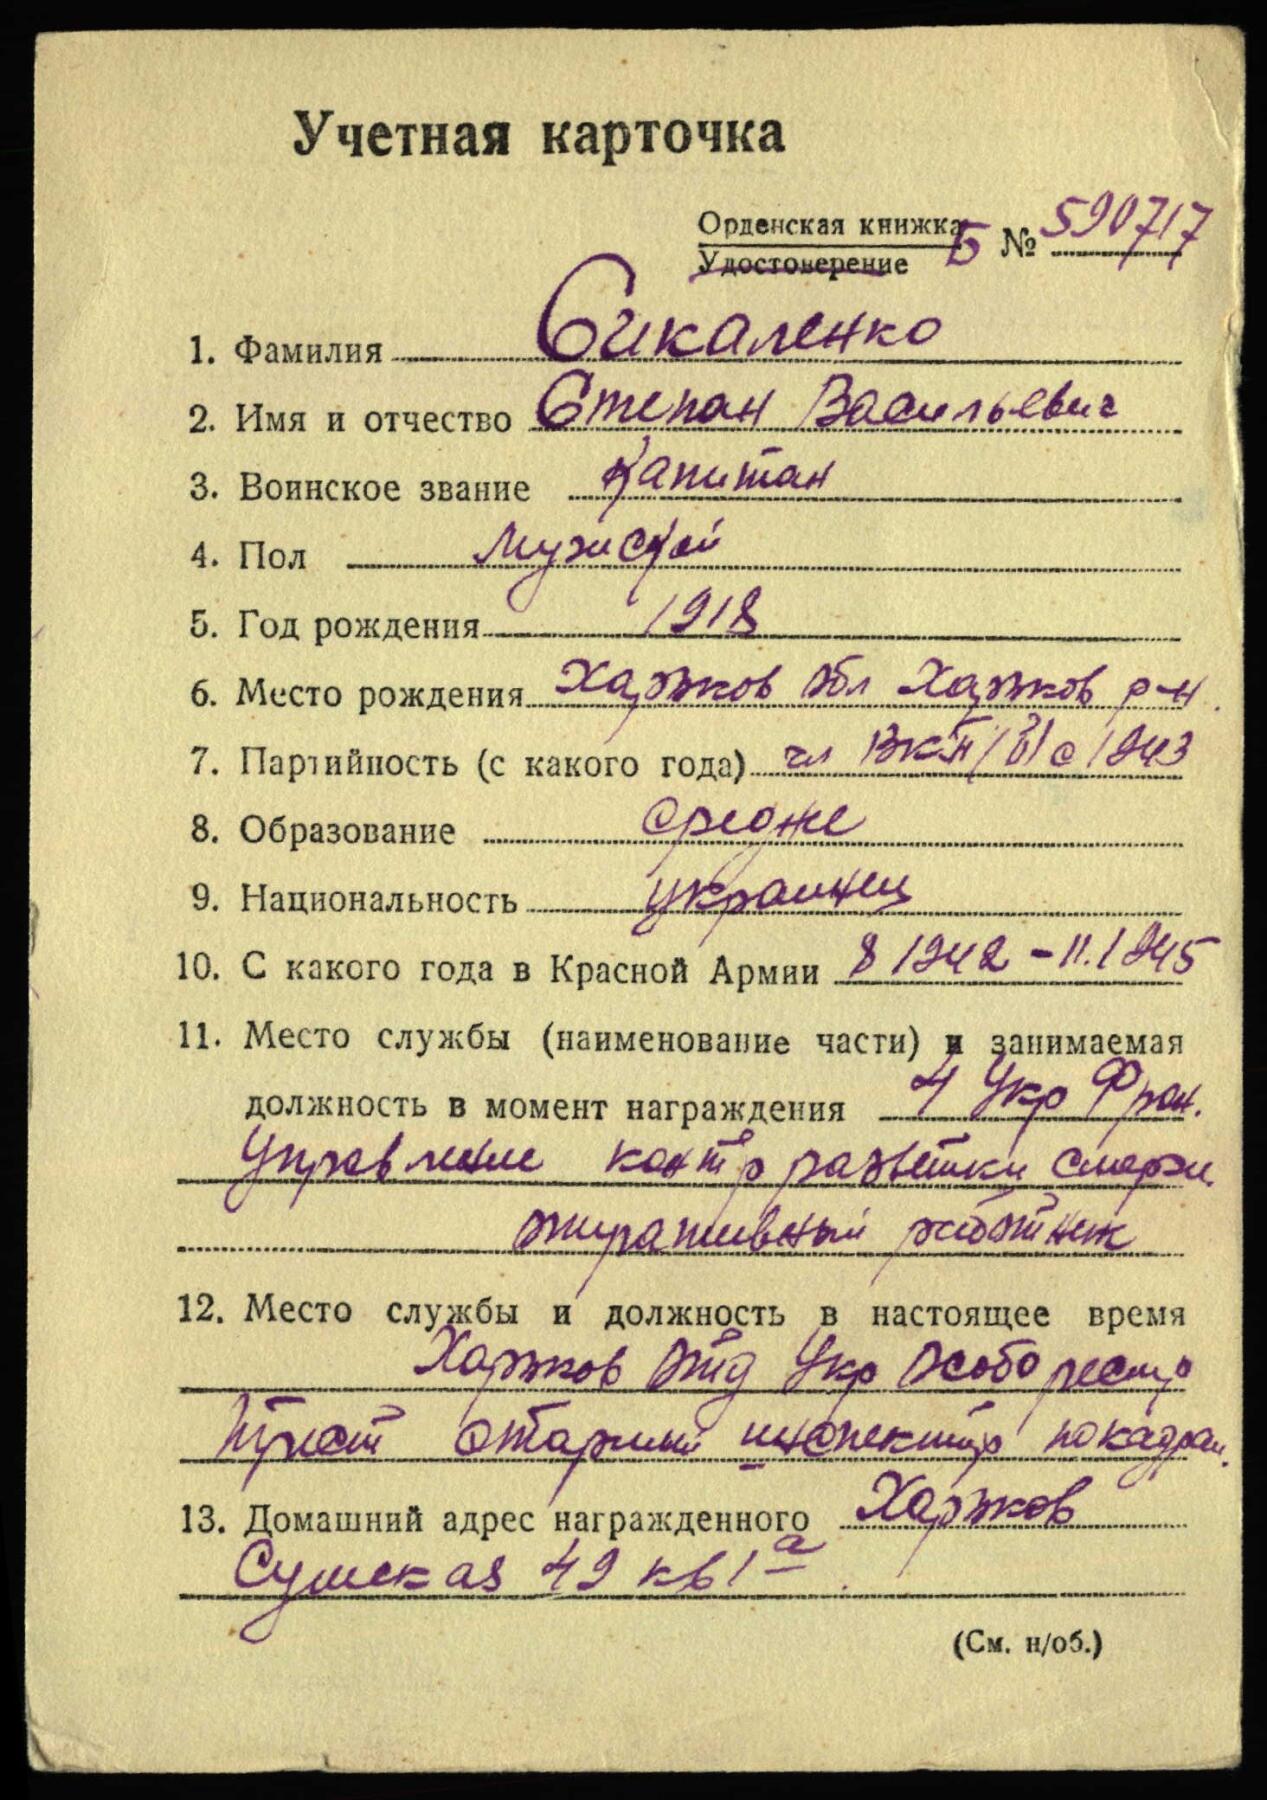 Учетная карточка
Орденская книжка Б № 590717
Удостоверение
1. Фамилия Сикаленко
2. Имя и отчество Степан Васильевич
3. Воинское звание Капитан
4. Пол Мужской
5. Год рождения 1918
6. Место рождения Харьков обл Харьков р-н
7. Партийность (с какого года) чл ВКП(б) с 1943
8. Образование средне
9. Национальность украинец
10. С какого года в Красной Армии 8 1942 - 11.1945
11. Место службы (наименование части) и занимаемая
должность в момент награждения 4 Укр Фрон.
Управление контрразветки смерш.
оперативный работник
12. Место службы и должность в настоящее время
Харьков отд Укр Особо
Трест старший инспектор по кадрам.
13. Домашний адрес награжденного Харьков
Сумская 49 кв 1а
(См. н/об.)